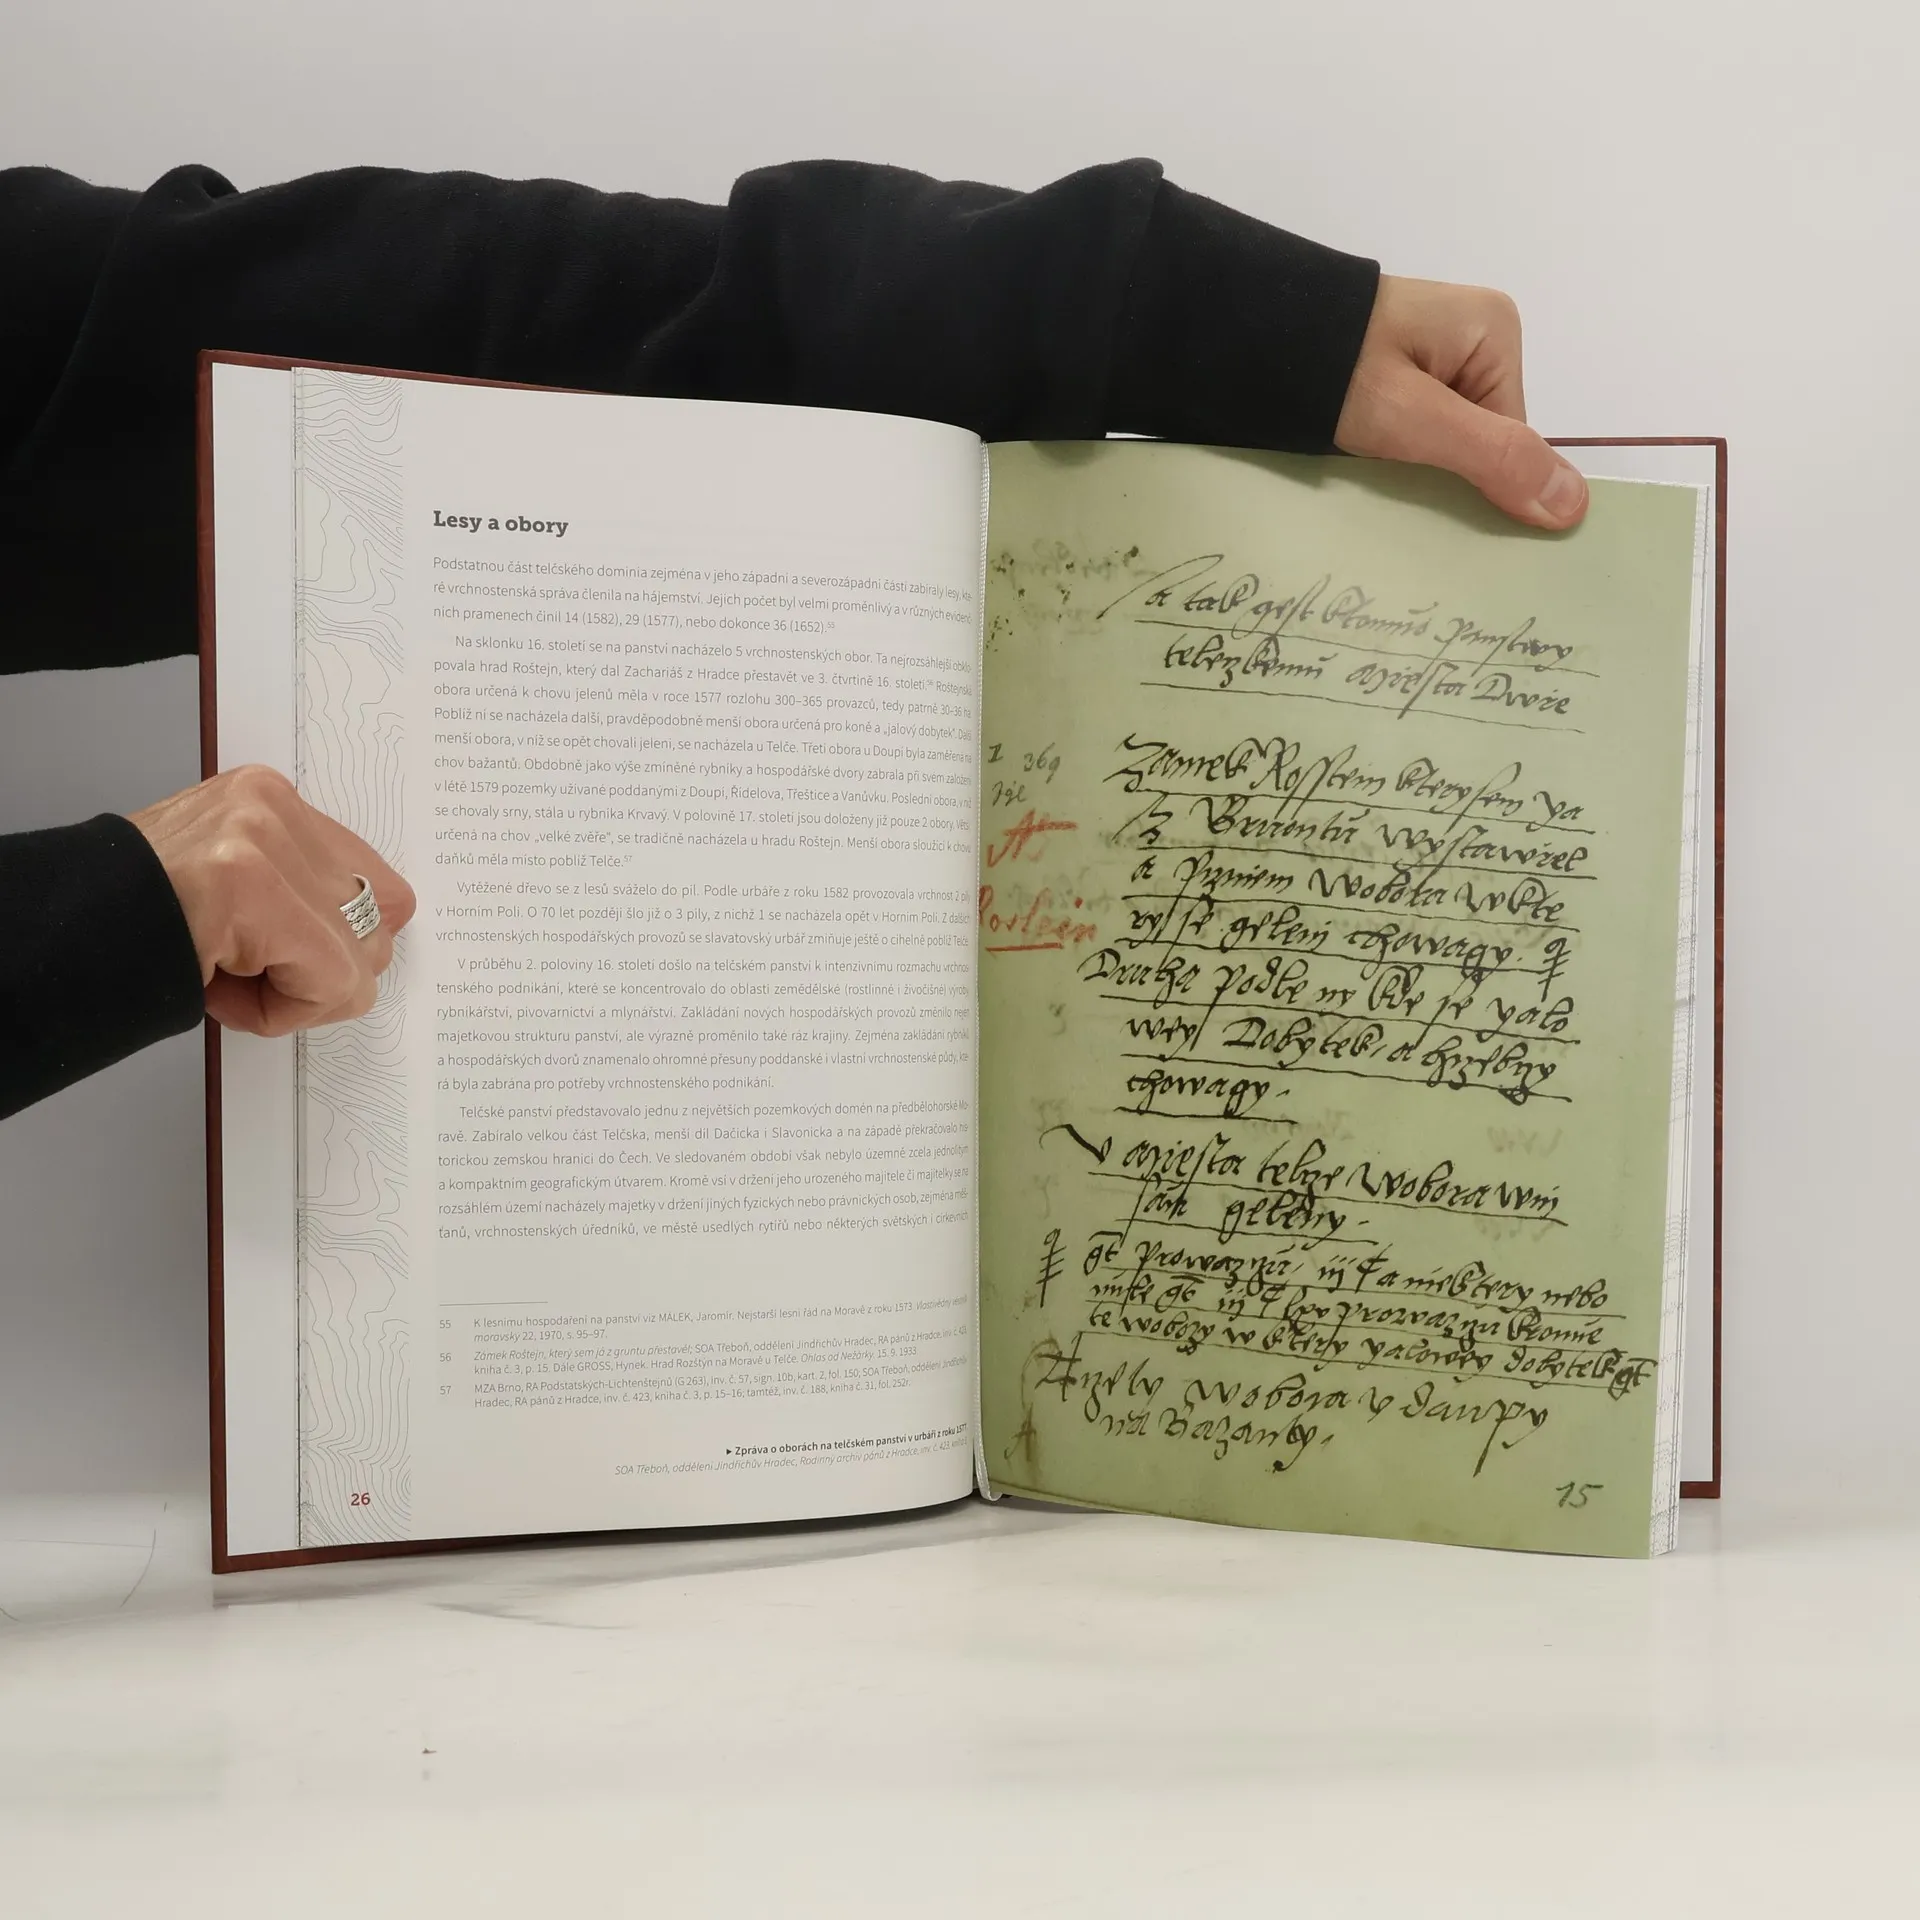 Lesy a obory
Podstatnou část telčského dominia zejména v jeho západní a severozápadní části zabíraly lesy, kte-
ré vrchnostenská správa členila na hájemství. Jejich počet byl velmi proměnlivý a v různých evidenč-
ních pramenech činil 14 (1582), 29 (1577), nebo dokonce 36 (1652).55
Na sklonku 16. století se na panství nacházelo 5 vrchnostenských obor. Ta nejrozsáhlejší obklo-
povala hrad Roštejn, který dal Zachariáš z Hradce přestavět ve 3. čtvrtině 16. století.56 Roštejnská
obora určená k chovu jelenů měla v roce 1577 rozlohu 300–365 provazců, tedy patrně 30–36 ha.
Poblíž ní se nacházela další, pravděpodobně menší obora určená pro koně a „jalový dobytek“. Další
menší obora, v níž se opět chovali jeleni, se nacházela u Telče. Třetí obora u Doupí byla zaměřena na
chov bažantů. Obdobně jako výše zmíněné rybníky a hospodářské dvory zabrala při svém založení
v létě 1579 pozemky užívané poddanými z Doupí, Řídelova, Třeštice a Vanůvku. Poslední obora, v níž
se chovaly srny, stála u rybníka Krvavý. V polovině 17. století jsou doloženy již pouze 2 obory. Větší
určená na chov „velké zvěře“, se tradičně nacházela u hradu Roštejn. Menší obora sloužící k chovu
daňků měla místo poblíž Telče.57
Vytěžené dřevo se z lesů sváželo do pil. Podle urbáře z roku 1582 provozovala vrchnost 2 pily
v Horním Poli. O 70 let později šlo již o 3 pily, z nichž 1 se nacházela opět v Horním Poli. Z dalších
vrchnostenských hospodářských provozů se slavatovský urbář zmiňuje ještě o cihelně poblíž Telče.
V průběhu 2. poloviny 16. století došlo na telčském panství k intenzivnímu rozmachu vrchnos-
tenského podnikání, které se koncentrovalo do oblasti zemědělské (rostlinné i živočišné) výroby,
rybníkářství, pivovarnictví a mlynářství. Zakládání nových hospodářských provozů změnilo nejen
majetkovou strukturu panství, ale výrazně proměnilo také ráz krajiny. Zejména zakládání rybníků
a hospodářských dvorů znamenalo ohromné přesuny poddanské i vlastní vrchnostenské půdy, kte-
rá byla zabrána pro potřeby vrchnostenského podnikání.
Telčské panství představovalo jednu z největších pozemkových domén na předbělohorské Mo-
ravě. Zabíralo velkou část Telčska, menší díl Dačicka i Slavonicka a na západě překračovalo his-
torickou zemskou hranici do Čech. Ve sledovaném období však nebylo územně zcela jednolitým
a kompaktním geografickým útvarem. Kromě vsí v držení jeho urozeného majitele či majitelky se na
rozsáhlém území nacházely majetky v držení jiných fyzických nebo právnických osob, zejména měš-
ťanů, vrchnostenských úředníků, ve městě usedlých rytířů nebo některých světských i církevních
55 K lesnímu hospodaření na panství viz MÁLEK, Jaromír. Nejstarší lesní řád na Moravě z roku 1573. Vlastivědný věstník
moravský 22, 1970, s. 95–97.
56 Zámek Roštejn, který sem já z gruntu přestavěl; SOA Třeboň, oddělení Jindřichův Hradec, RA pánů z Hradce, inv. č. 423,
kniha č. 3, p. 15. Dále GROSS, Hynek. Hrad Rozštýn na Moravě u Telče. Ohlas od Nežárky. 15. 9. 1933.
57 MZA Brno, RA Podstatských-Lichtenštejnů (G 263), inv. č. 57, sign. 10b, kart. 2, fol. 150; SOA Třeboň, oddělení Jindřichův
Hradec, RA pánů z Hradce, inv. č. 423, kniha č. 3, p. 15–16; tamtéž, inv. č. 188, kniha č. 31, fol. 252r.
▸ Zpráva o oborách na telčském panství v urbáři z roku 1577.
SOA Třeboň, oddělení Jindřichův Hradec, Rodinný archiv pánů z Hradce, inv. č. 423, kniha
26
a tak gest panstwy
telczkemu miesta Dwie
Zamek Rosstein kterysem ya
z Gruntu wystawiel
a Obora wkte
ry se geleni chowagy.
Druha podle ny kde se yalo
wey Dobytek, a hrzebny
chowagy.
V miesta telcze wobora win
sau geleny.
prowazku, a niektery nebo
prowazku
te wobory w ktery yalowey dobytek
wobora u Daupy
na Bazanty.
15